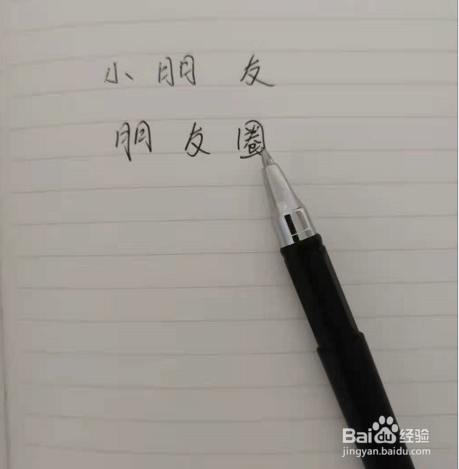 小朋友
朋友圈
Baidu经验
jingyan.baidu.com